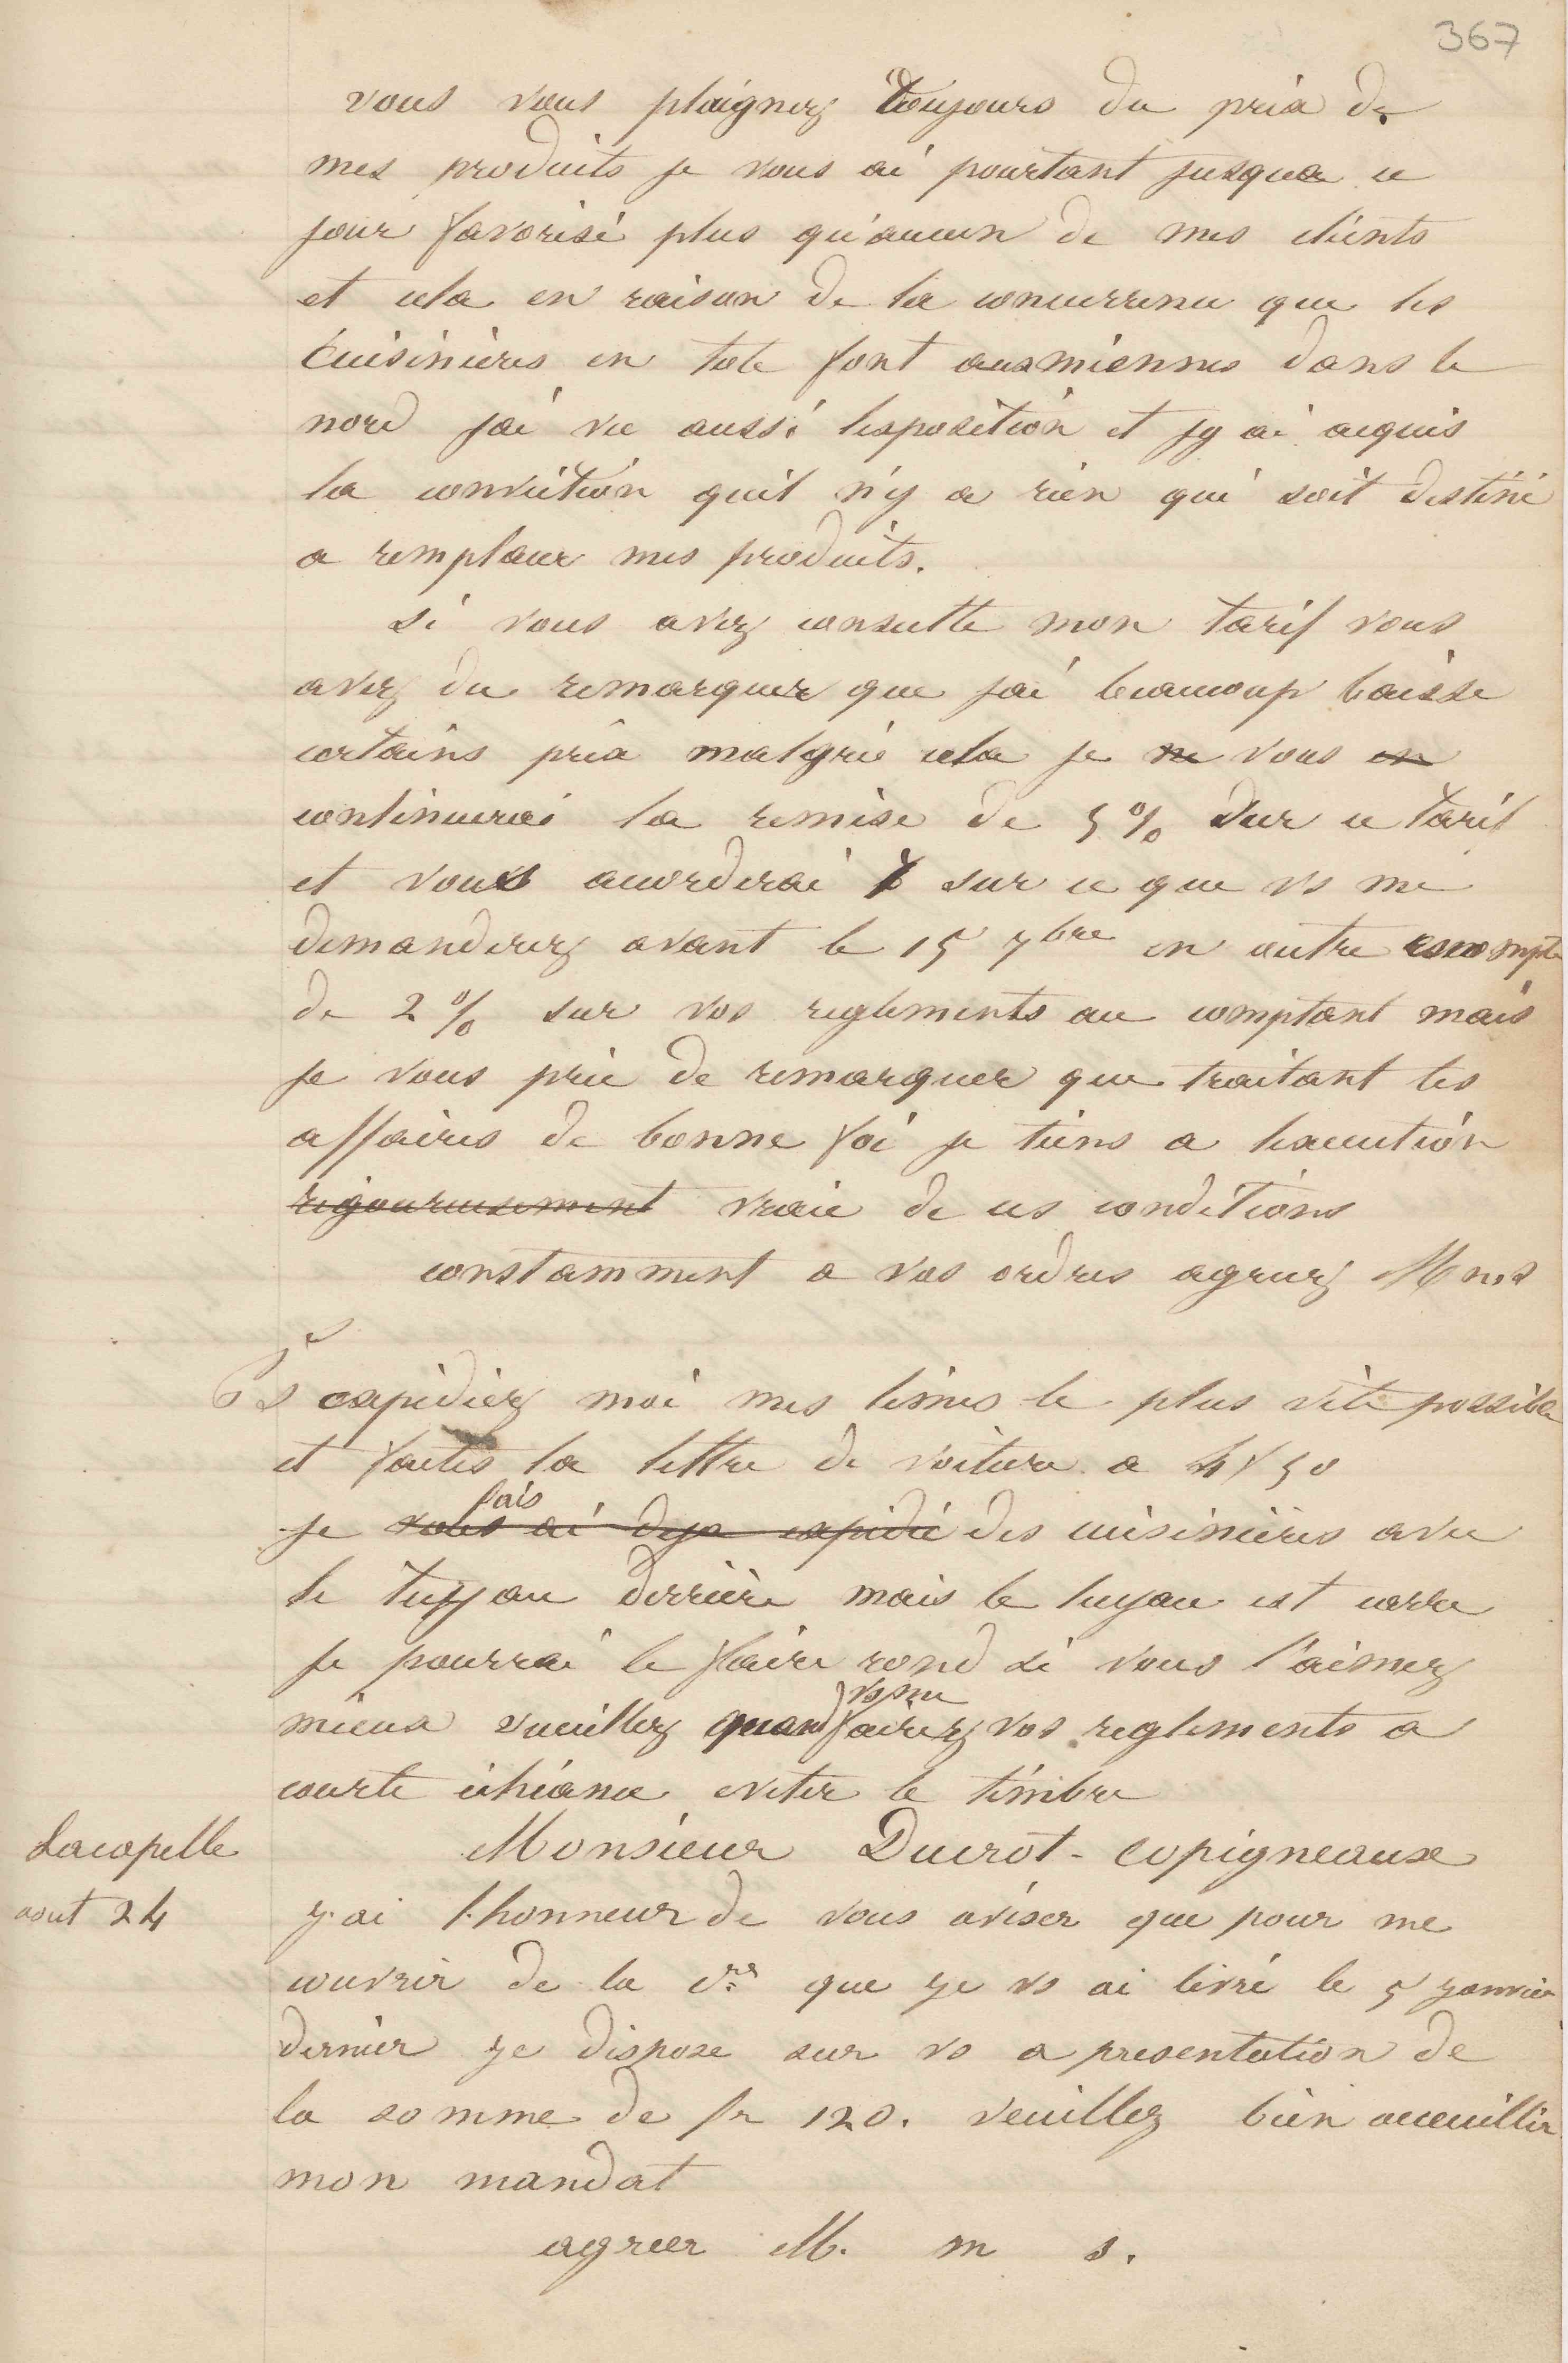 367
vous vous plaignez toujours du prix de
mes produits je vous ai pourtant jusqua ce
jour favorisé plus qu'aucun de mes clients
et cela en raison de la concurrence que les
cuisinières en tole font aux miennes dans le
nord jai vu aussi lexposition et jy ai acquis
la conviction quil n'y a rien qui soit destiné
a remplacer mes produits.
si vous avez consulte mon tarif vous
avez du remarquer que jai beaucoup baisse
certains prix malgré cela je ne vous en
continuerai la remise de 5 % sur ce tarif
et vous accorderai sur ce que vs me
demanderez avant le 15 7bre en outre escompte
de 2 % sur vos reglements au comptant mais
je vous prie de remarquer que traitant les
affaires de bonne foi je tiens a lexecution
rigoureusement vraie de ces conditions
constamment a vos ordres agreez M mes
Ps expédiez moi mes limes le plus vite possible
et faites la lettre de voiture a 4f 50
je vous ai deja expidié fais des cuisinières avec
le tuyau derrière mais le tuyau est carre
je pourrai le faire rond si vous l'aimez
mieux veuillez quand vs me fairez vos reglements a
courte échéance eviter le timbre
Lacapelle
aout 24
Monsieur Ducrot-Copigneaux
j.ai l.honneur de vous aviser que pour me
couvrir de la que je vs ai livré le 5 janvier
dernier je dispose sur vs a presentation de
la somme de fr 120. veuillez bien acceuillir
mon mandat
agreer M. m s.